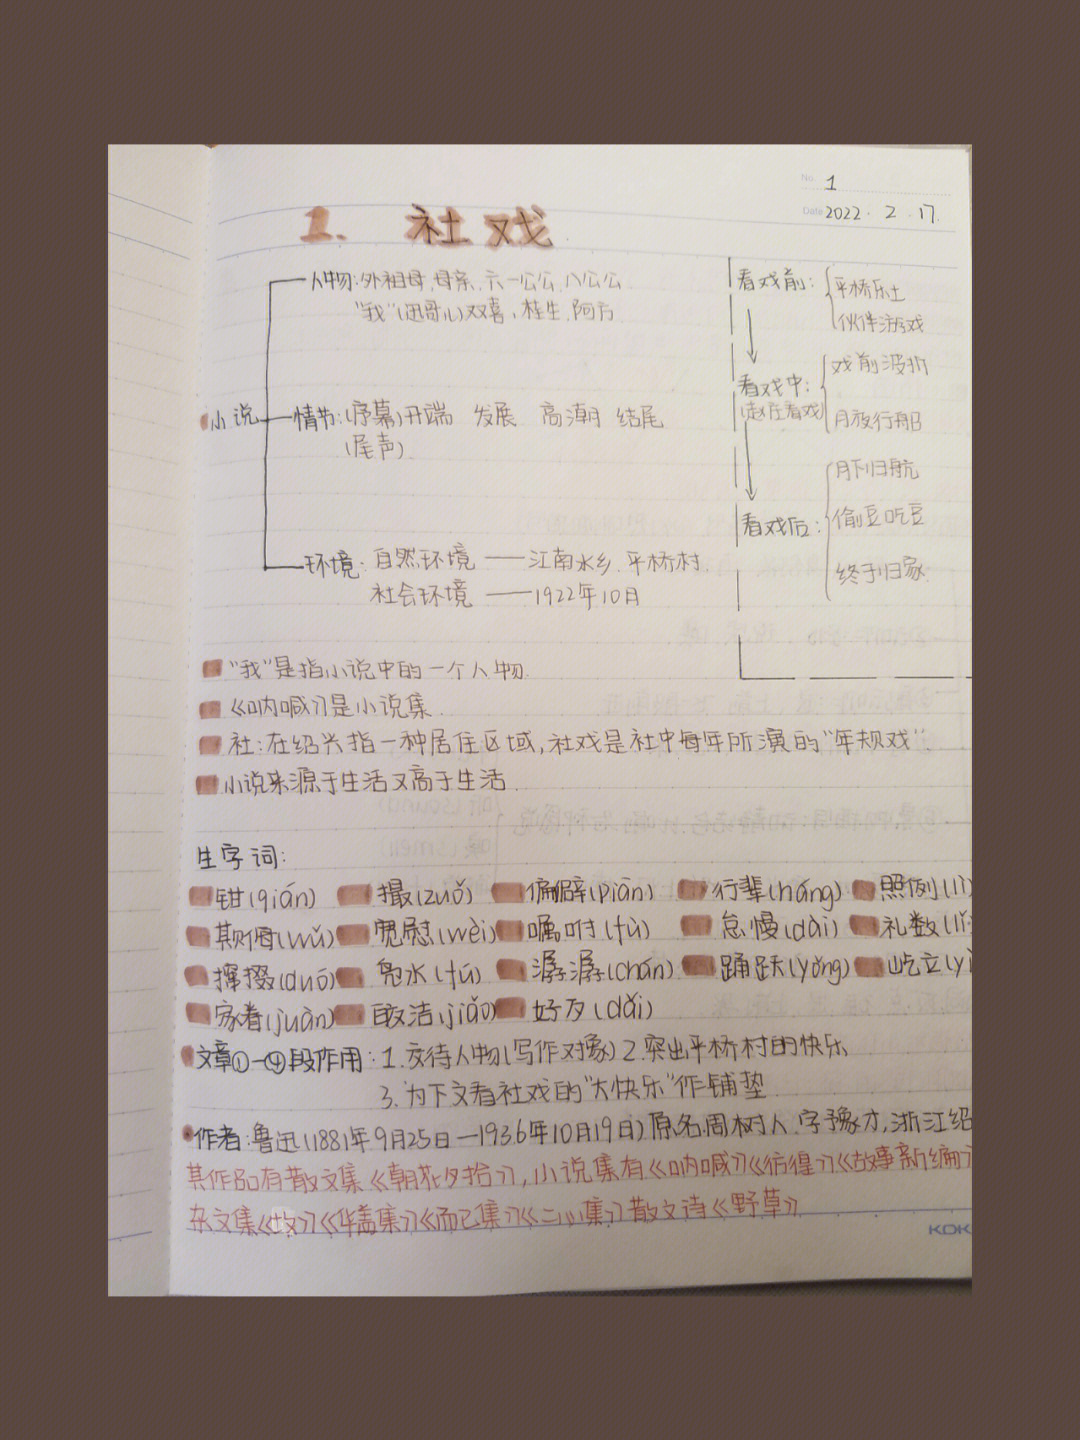 No. 1
Date 2022. 2. 17.
1. 社戏
人物:外祖母,母亲,六一公公,八公公
"我"(迅哥儿)双喜,桂生,阿方
小说
情节:(序幕)开端 发展 高潮 结尾
(尾声)
环境: 自然环境 —— 江南水乡,平桥村.
社会环境 —— 1922年10月
看戏前:
平桥乐土
伙伴游戏
看戏中:
(赵庄看戏)
戏前波折
月夜行船
看戏后:
月下归航
偷豆吃豆
终于归家
"我"是指小说中的一个人物.
《呐喊》是小说集
社:在绍兴指一种居住区域,社戏是社中每年所演的"年规戏".
小说来源于生活又高于生活
生字词:
钳(qián) 撮(zuǒ) 偏僻(piān) 行辈(háng) 照例(lì)
欺侮(wǔ) 宽慰(wèi) 嘱咐(fù) 怠慢(dài) 礼数(lǐ
撺掇(duō) 凫水(fú) 潺潺(chán) 踊跃(yǒng) 屹立(yì
家眷(juàn) 皎洁(jiǎo) 好歹(dǎi)
文章①—④段作用:1.交待人物(写作对象) 2.突出平桥村的快乐
3.为下文看社戏的"大快乐"作铺垫.
作者:鲁迅(1881年9月25日—1936年10月19日)原名周树人.字豫才,浙江绍
其作品有散文集《朝花夕拾》,小说集有《呐喊》《彷徨》《故事新编》
杂文集《坟》《华盖集》《而已集》《二心集》散文诗《野草》